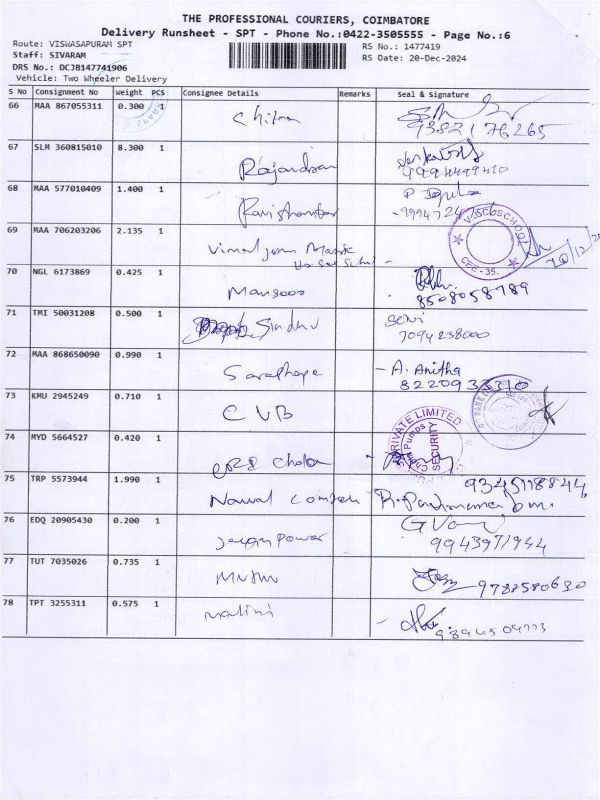 THE PROFESSIONAL COURIERS, COIMBATORE
Delivery Runsheet - SPT - Phone No.:0422-3505555 - Page No.:6
Route: VISWASAPURAM SPT
Staff: SIVARAM
DRS No.: DCJB147741906
Vehicle: Two Wheeler Delivery
RS No.: 1477419
RS Date: 20-Dec-2024
S No Consignment No Weight PCS Consignee Details Remarks Seal & Signature
66 MAA 867055311 0.300 1 Chitra
67 SLM 360815010 8.300 1 Rajandran
68 MAA 577010409 1.400 1 Ravishankar
69 MAA 706203206 2.135 1
CBE-35.
70 NGL 6173869 0.425 1 Mansoor 8508058789
71 TMI 50031208 0.500 1 Sindhu 7094238000
72 MAA 868650090 0.990 1 A. Anitha
73 KMU 2945249 0.710 1 CUB
PRIVATE LIMITED
Pumps
SECURITY
74 MYD 5664527 0.420 1
75 TRP 5573944 1.990 1 9345118844
76 EDQ 20905430 0.200 1 power 9943971944
77 TUT 7035026 0.735 1 9788580630
78 TPT 3255311 0.575 1 malini